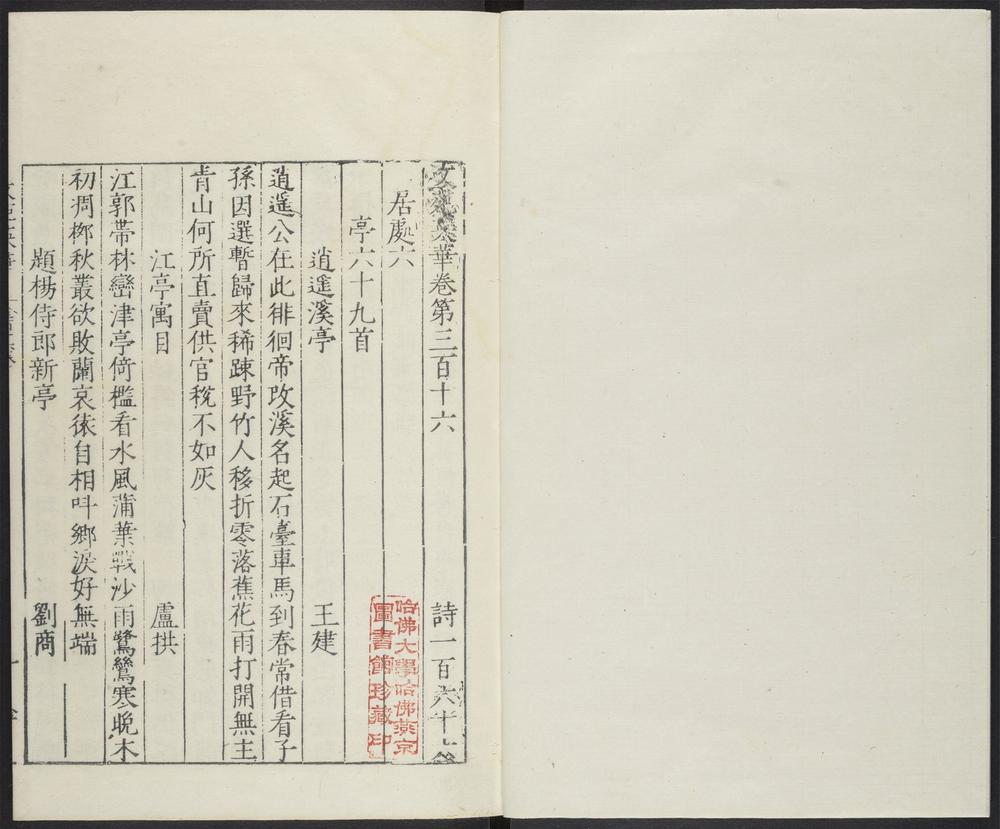 文苑英華卷第三百十六
詩一百六十六
居處六
亭六十九首
逍遥溪亭
王建
逍遥公在此徘徊帝改溪名起石臺車馬到春常借看子
孫因選暫歸來稀踈野竹人移折零落蕉花雨打開無主
青山何所直賣供官稅不如灰
江亭寓目
盧拱
江郭帶林巒津亭倚檻看水風蒲葉戰沙雨鷺鷥寒晚木
初凋栁秋叢欲敗蘭哀猿自相呌鄉淚好無端
題楊侍郎新亭
劉商
哈佛大學哈佛燕京
圖書館珍藏印